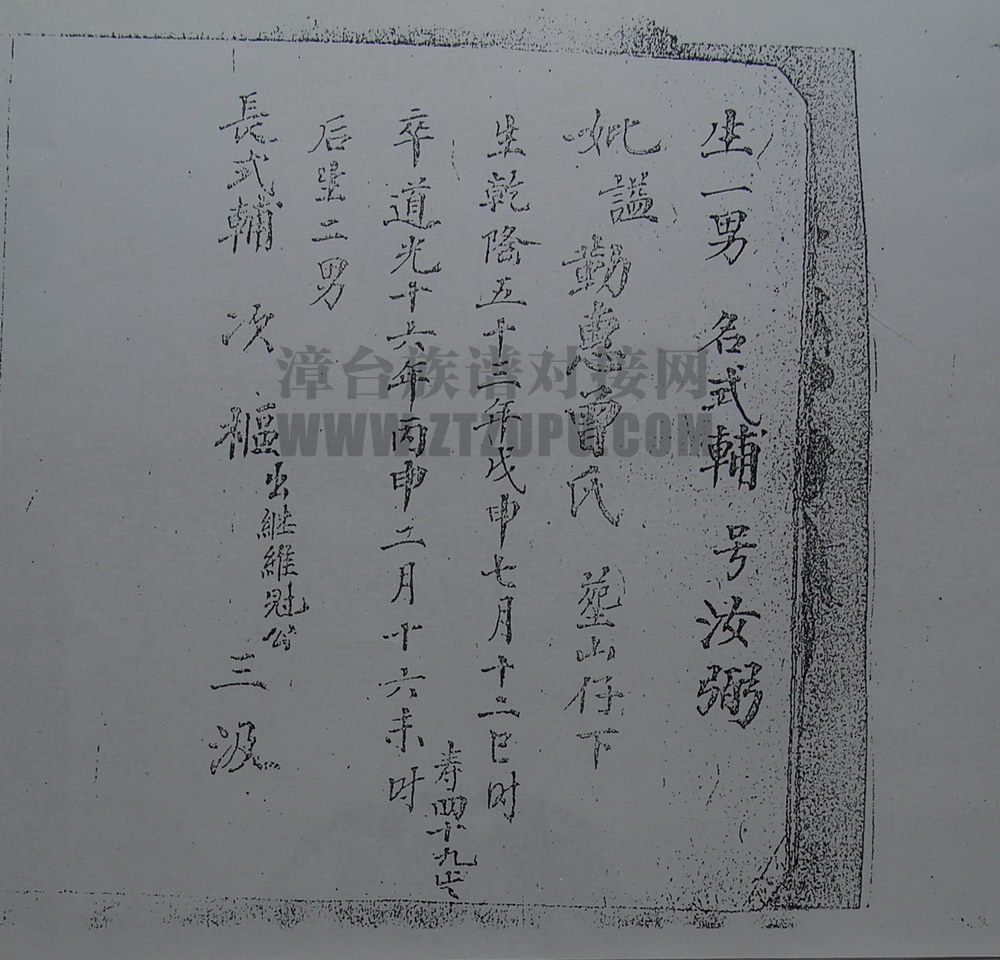 生一男 名式輔 号汝弼
妣謚勤惠曾氏 塟山仔下
生乾隆五十三年戊申七月十二日时
卒道光十六年丙申二月十六未时
寿四十九岁
后生二男
長式輔 次樞出継維魁公 三汲
漳台族谱对接网
WWW.ZTZUPU.COM